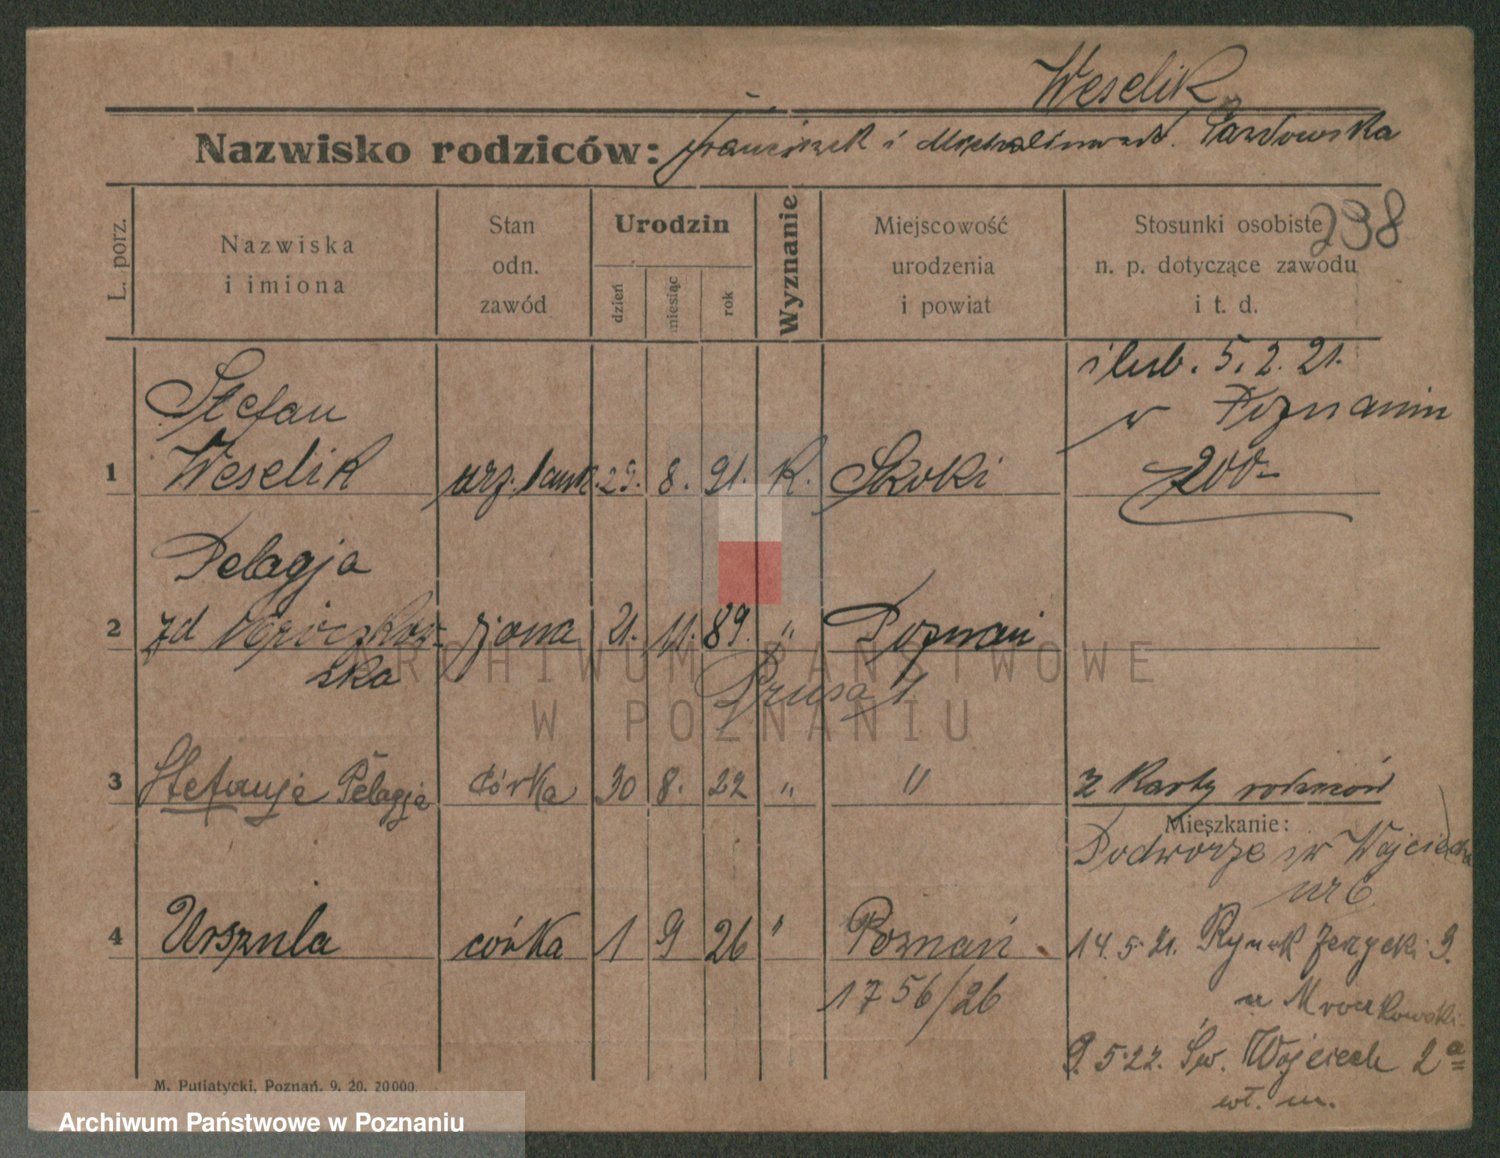 Weselik
Nazwisko rodziców: Franciszek i Michalina
238
L. porz.
Nazwiska
i imiona
Stan
odn.
zawód
Urodzin
dzień
miesiąc
rok
Wyznanie
Miejscowość
urodzenia
i powiat
Stosunki osobiste
n. p. dotyczące zawodu
i t. d.
ślub. 5. 2. 21.
w Poznaniu
200-
1 Stefan
Weselik urz. bank. 29. 8. 91. K. Skoki
Pelagja
2 zd
ska żona 21. 11. 89. " Poznań
Prusa 1
3 Stefanja Pelagja córka 30 8. 22 " " z Karty rodziców
Mieszkanie:
Podwórze św Wojciecha
nr 6
4 Urszula córka 1 9 26 " Poznań
1756/26
14. 5. 21. Rynek Jeżycki 9.
u Mroczkowski
9. 5. 22. Św. Wojciech 2a
wł. m.
M. Putiatycki, Poznań. 9. 20. 20000.
ARCHIWUM PAŃSTWOWE
W POZNANIU
Archiwum Państwowe w Poznaniu